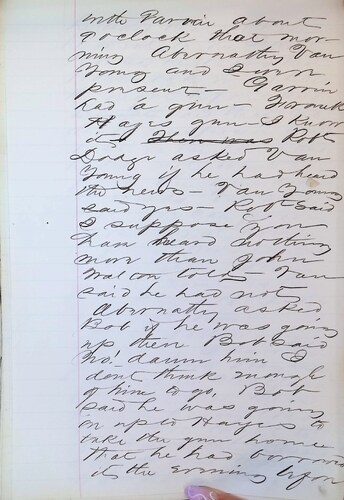 with Parvin about
9 oclock that mor-
ning Abernathy Van
Young and I were
present - Garvin
had a gun - Frank
Hayes gun I know
it. Then was Rob
Dodge asked Van
Young if he had heard
the news - Van Young
said yes - Rob said
I suppose you
have heard nothing
more than John
Walcon told - Van
said he had not
Abernathy asked
Bob if he was going
up there Bob said
no! damn him I
dont think enough
of him to go, Bob
said he was going
in up to Hayes to
take the gun home
that he had borrowed
it the evening before